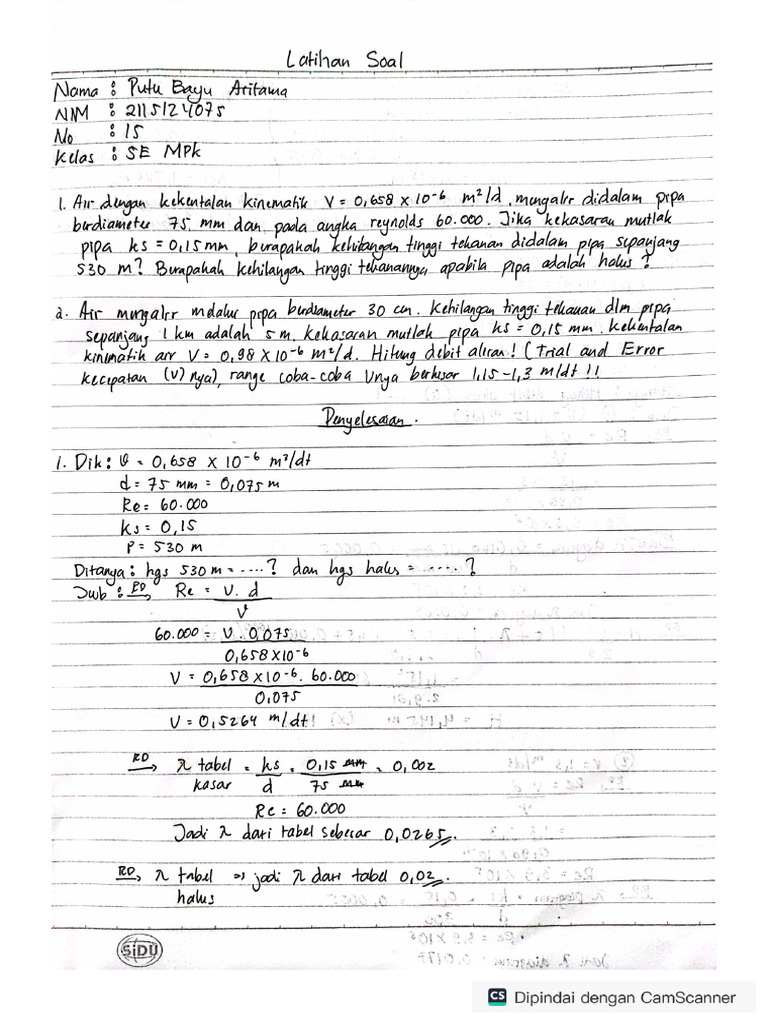 Latihan Soal
Nama : Putu Bayu Aritama
NIM : 2115124075
No : 15
Kelas : 5E MPK
1. Air dengan kekentalan kinematik V = 0,658 x 10⁻⁶ m²/d, mengalir didalam pipa
berdiameter 75 mm dan pada angka reynolds 60.000. Jika kekasaran mutlak
pipa ks = 0,15 mm, berapakah kehilangan tinggi tekanan didalam pipa sepanjang
530 m? Berapakah kehilangan tinggi tekanannya apabila pipa adalah halus?
2. Air mengalir melalui pipa berdiameter 30 cm. Kehilangan tinggi tekanan dlm pipa
sepanjang 1 km adalah 5 m. Kekasaran mutlak pipa ks = 0,15 mm. Kekentalan
kinematik air V = 0,98 x 10⁻⁶ m²/d. Hitung debit aliran! (Trial and Error
kecepatan (v) nya), range coba-coba Vnya berkisar 1,15-1,3 m/dt !!
Penyelesaian.
1. Dik : υ = 0,658 x 10⁻⁶ m²/dt
d = 75 mm = 0,075 m
Re = 60.000
ks = 0,15
P = 530 m
Ditanya : hgs 530 m = ....? dan hgs halus = .....?
Jwb : Re = V. d
V
60.000 = V . 0,075
0,658 x 10⁻⁶
V = 0,658 x 10⁻⁶. 60.000
0,075
V = 0,5264 m/dt!
→ λ tabel = ks = 0,15 mm = 0,002
kasar d 75 mm
Re = 60.000
Jadi λ dari tabel sebesar 0,0265.
→ λ tabel => jadi λ dari tabel 0,02.
halus
SiDU
CS Dipindai dengan CamScanner